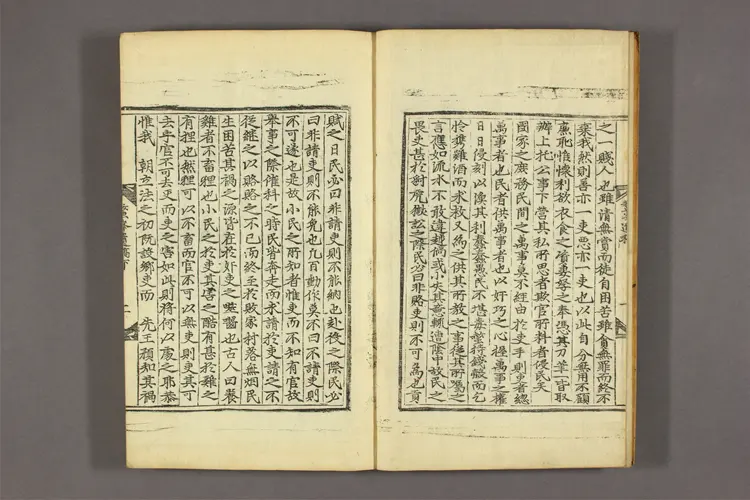 之一賤人也雖請無賞而徒自困苦雖貪無罪而終不
棄我然則善亦一吏惡亦一吏也以此自分無用不顧
廉恥惟懷利欲衣食之資妻孥之奉憑其刀筆皆取
辦上托公事下營其私所思者欺官所料者侵民矣
國家之庶務民間之萬事莫不經由於吏手則吏者總
萬事者也民者供萬事者也以奸巧之心握萬事之權
日日侵刻以漁其利蠢蠢愚民不堪毒螫符錢醎而乞
憐携雞酒而求救又為之供其所教之事從其所囑之
言應如流水不敢違越偶或少失其意輒遭陰中故民之
畏吏甚於射虎獄訟之際民必曰非賂吏則不可為也貢
賦之日民必曰非請吏則不能納也赴役之際民必
曰非請吏則不能免也凡百動作莫不曰不請吏則
不可遂也是故小民之所知者惟吏而不知有官故
舉事之際催科之時民皆奔走而求請於吏請之不
從繼之以賂賂之不已而終至於敗家村落無烟民
生困苦其禍之源皆在於奸吏之 也古人曰養
雞者不畜狸也小民之於吏其害之酷有甚於雞之
有狸也然狸可以不畜而官不可以無吏則吏其可
去乎官不可去吏而吏之害如此則將何以處之耶恭
惟我 朝立法之初既設鄉吏而 先王顧知其禍